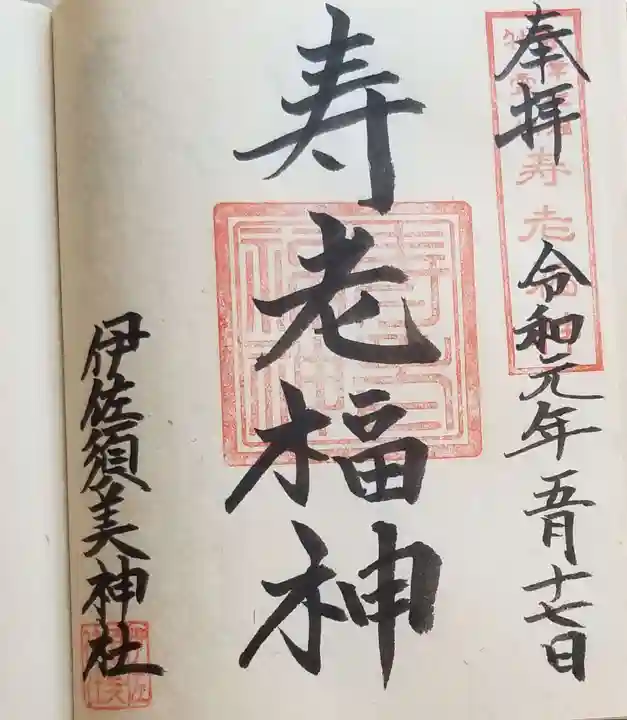 奉拝
令和元年五月十七日
寿老福神
伊佐須美神社